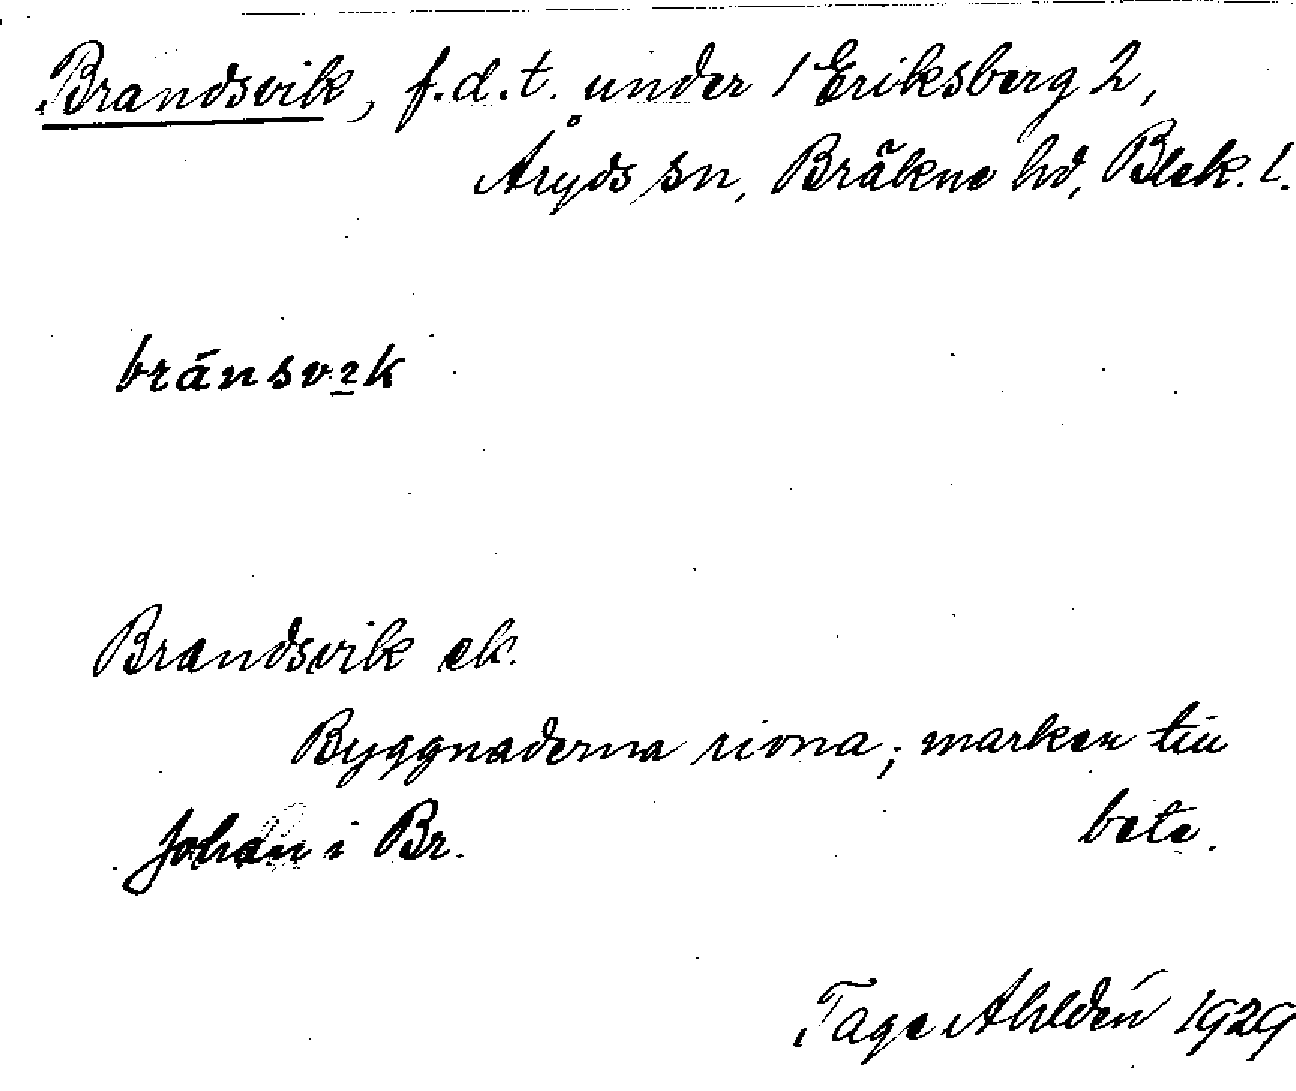 Brandsvik, f.d.t. under 1 Eriksberg 2,
Åryds sn, Bräkne hd, Blek. l.
bránsvɪk
Brandsvik ek.
Byggnaderna rivna; marken till
bete.
Johan i Br.
Tage Ahldén 1929